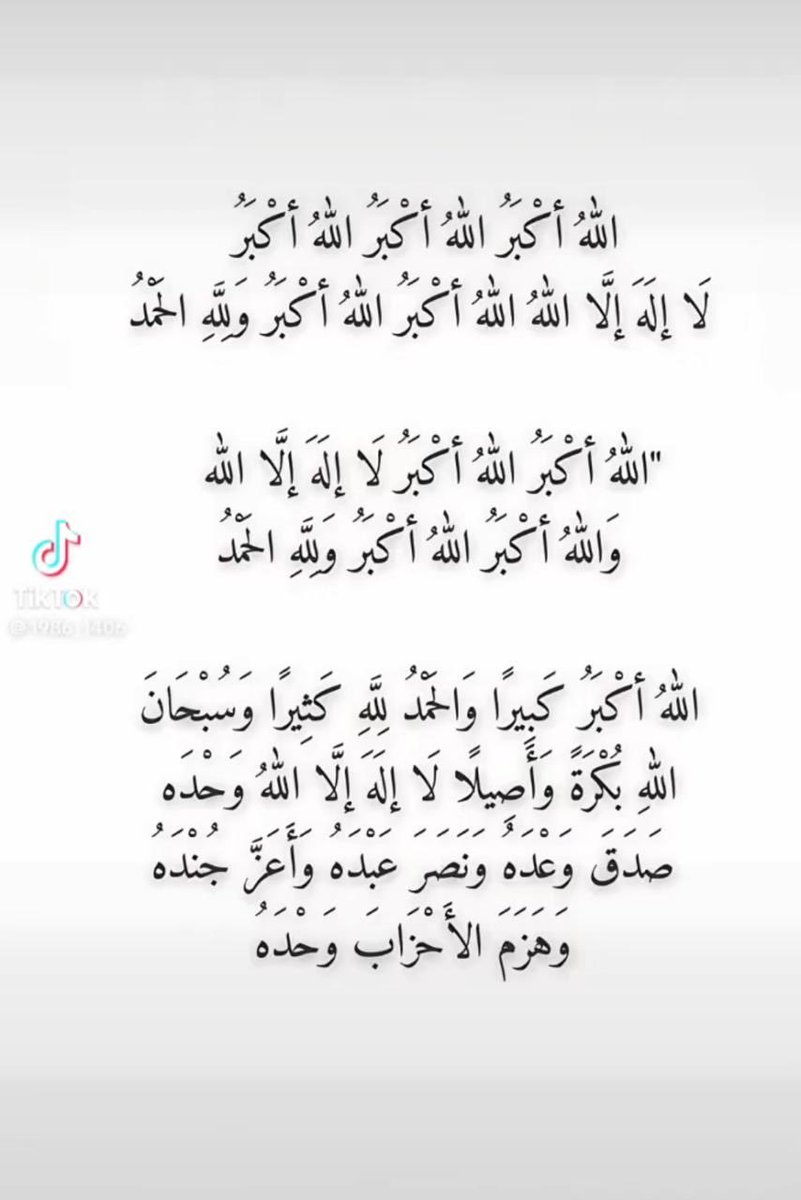 اللهُ أَكْبَرُ اللهُ أَكْبَرُ اللهُ أَكْبَرُ
لَا إِلَهَ إِلَّا اللهُ اللهُ أَكْبَرُ اللهُ أَكْبَرُ وَلِلَّهِ الحَمْدُ
"اللهُ أَكْبَرُ اللهُ أَكْبَرُ لَا إِلَهَ إِلَّا الله
وَاللهُ أَكْبَرُ اللهُ أَكْبَرُ وَلِلَّهِ الحَمْدُ
TikTok
@1986_1406
اللهُ أَكْبَرُ كَبِيرًا وَالحَمْدُ لِلَّهِ كَثِيرًا وَسُبْحَانَ
اللهِ بُكْرَةً وَأَصِيلًا لَا إِلَهَ إِلَّا اللهُ وَحْدَه
صَدَقَ وَعْدَهُ وَنَصَرَ عَبْدَهُ وَأَعَزَّ جُنْدَهُ
وَهَزَمَ الأَحْزَابَ وَحْدَهُ